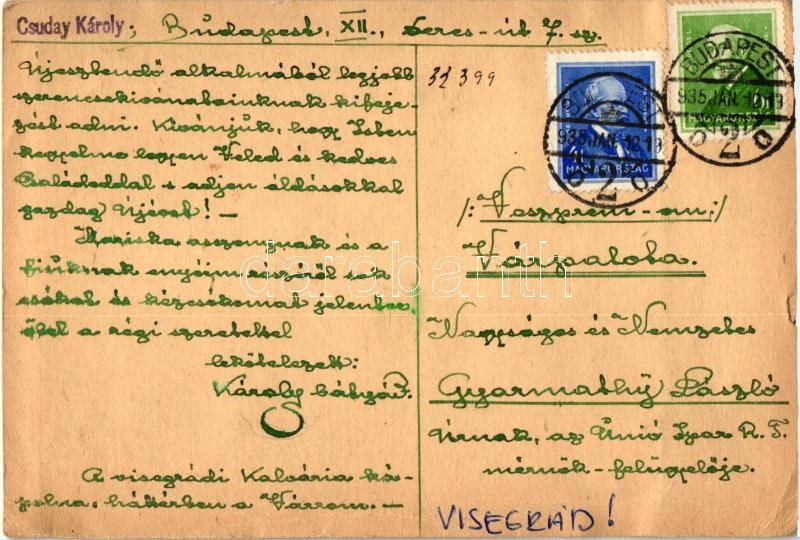 Csuday Károly; Budapest, XII., Beres-út 7. sz.
Újesztendő alkalmából legjobb
szerencsekivánatainknak kifeje-
zést adni. Kivánjuk, hogy Isten
kegyelme legyen Veled és kedves
Családoddal s adjon áldásokkal
gazdag Újévet! –
Mariska asszonynak és a
fiúknak enyéim részéről sok
csókot és kézcsókomat jelentve
ölel a régi szeretettel
lekötelezett:
Károly bátyád.
A visegrádi Kalvária ká-
polna, háttérben a Várrom. –
32399
BUDAPEST
935 JAN. 12 19
MAGYARORSZÁG
2
BUDAPEST
935 JAN. 12 19
MAGYARORSZÁG
2
/: Veszprém-m :/
Várpalota.
darabanth
Nagyságos és Nemzetes
Gyarmathy László
Úrnak, az Únió Ipar R. T.
mérnök-felügyelője.
VISEGRÁD!